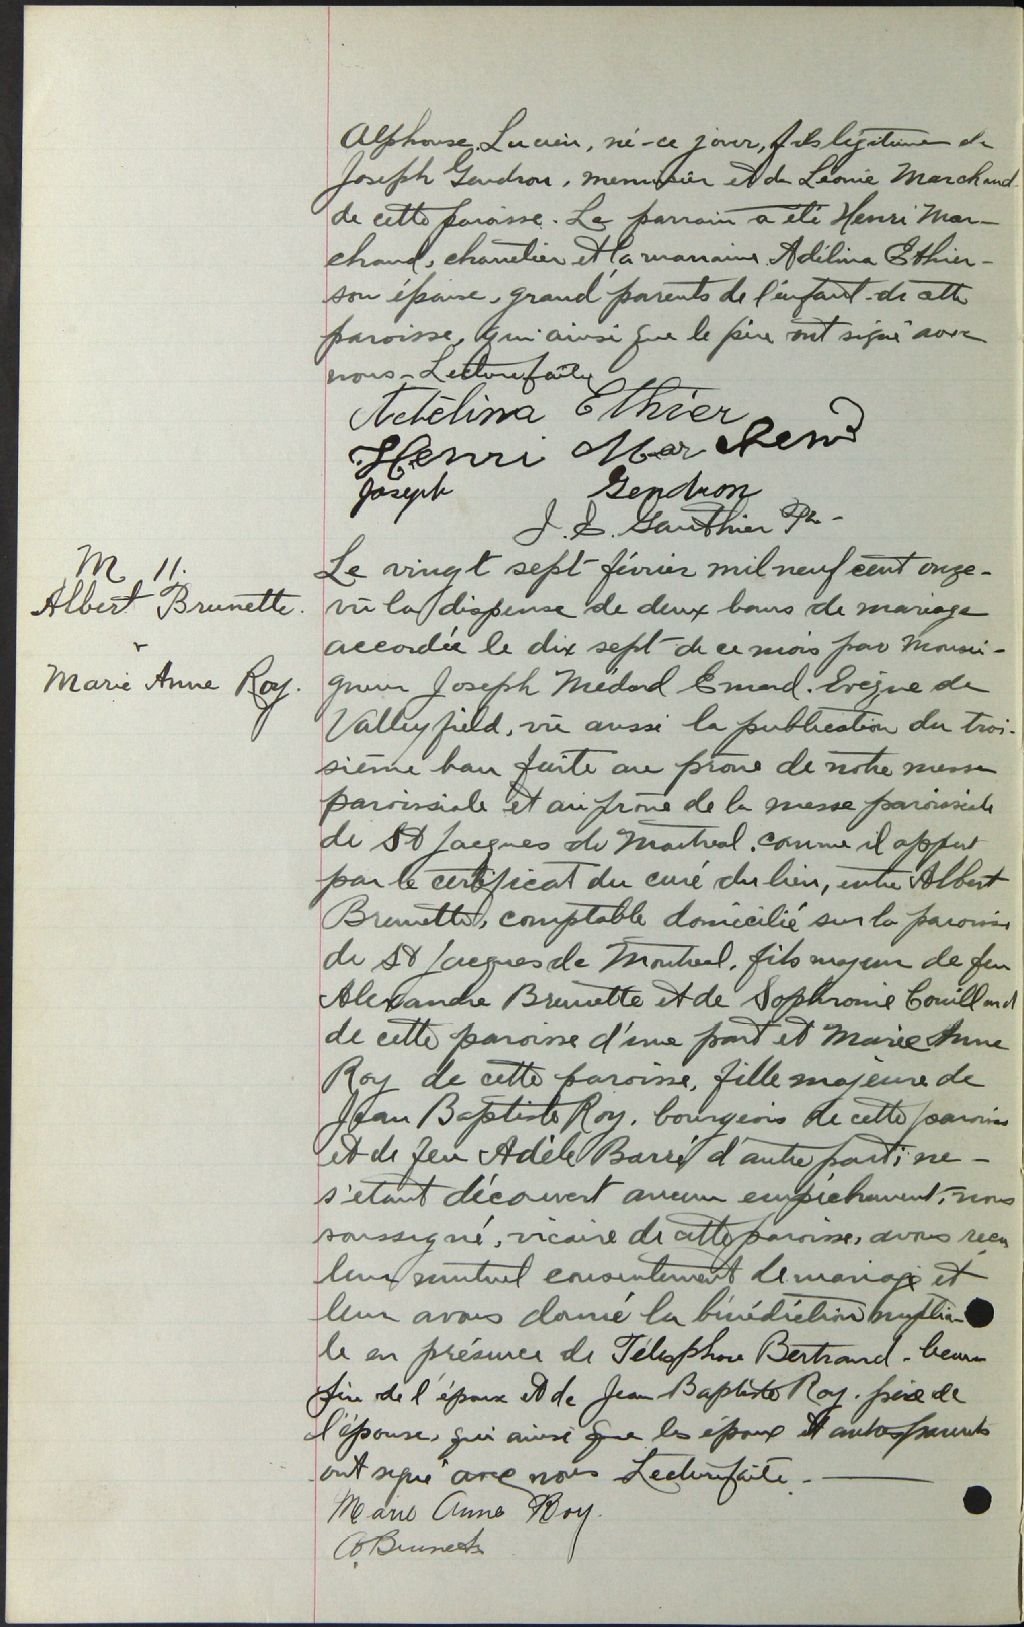 Alphonse Lucien, né-ce jour, fils légitime de
Joseph Gendron, menuisier et de Léonie Marchand
de cette paroisse. Le parrain a été Henri Mar-
chand, charretier et la marraine Adélina Ethier-
son épouse, grand'parents de l'enfant de cette
paroisse, qui ainsi que le père ont signé avec
nous - Lecture faite
Adélina Ethier
Henri Marchand
Joseph Gendron
J. E. Gauthier Ptr -
M 11.
Albert Brunette.
Marie Anne Roy.
Le vingt sept février mil neuf cent onze-
vu la dispense de deux bans de mariage
accordée le dix sept de ce mois par Monsei-
gneur Joseph Médard Emard. Evêque de
Valleyfield, vu aussi la publication du troi-
sième ban faite au prône de notre messe
paroissiale et au prône de la messe paroissiale
de St Jacques de Montreal, comme il appert
par le certificat du curé du lieu, entre Albert
Brunette, comptable domicilié sur la paroisse
de St Jacques de Montreal, fils majeur de feu
Alexandre Brunette et de Sophronie Couillard
de cette paroisse d'une part et Marie Anne
Roy de cette paroisse, fille majeure de
Jean Baptiste Roy, bourgeois de cette paroisse
et de feu Adèle Barré d'autre part; ne-
s'étant découvert aucun empêchement, nous
soussigné, vicaire de cette paroisse, avons reçu
leur mutuel consentement de mariage et
leur avons donné la bénédiction nuptia-
le en présence de Télesphore Bertrand - beau
père de l'époux et de Jean Baptiste Roy. père de
l'épouse, qui ainsi que les époux et autres parents
ont signé avec nous Lecture faite.
Marie Anne Roy.
A. Brunette